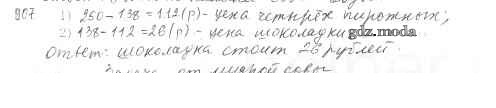 907 1) 250-138=112(р)-цена четырёх пирожных;
2) 138-112=26(р)-цена шоколадки
gdz.moda
Ответ: шоколадка стоит 26 рублей.
от мудрой совы